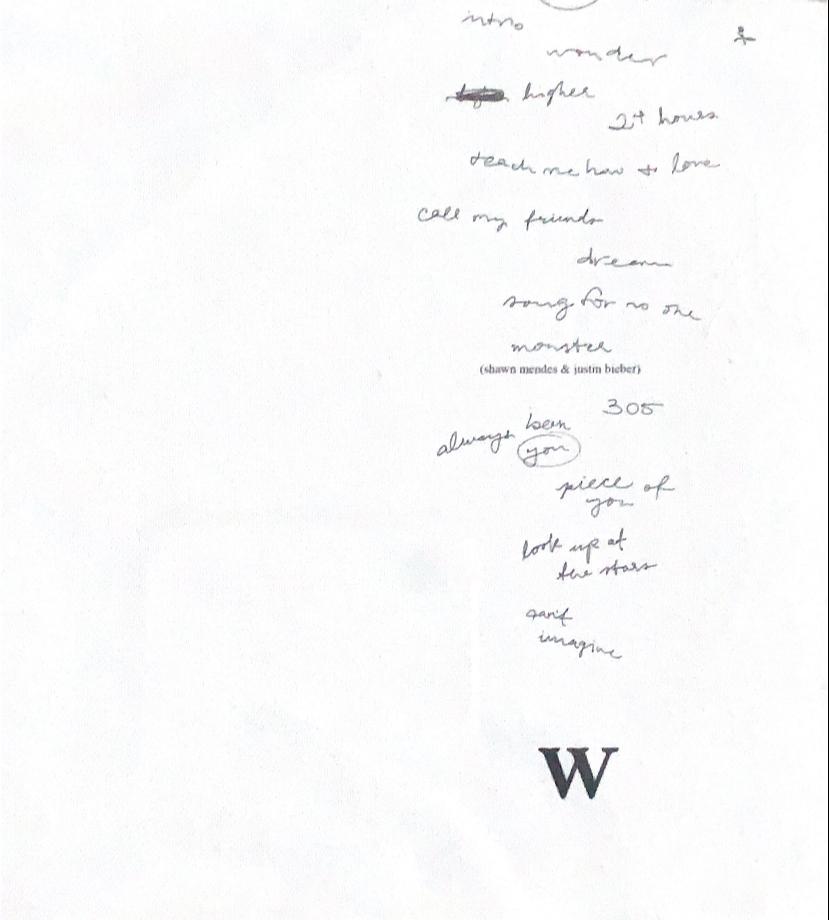 intro
wonder
higher
24 hours
teach me how to love
call my friends
dream
song for no one
monster
(shawn mendes & justin bieber)
305
always been
you
piece of
you
look up at
the stars
can't
imagine
W